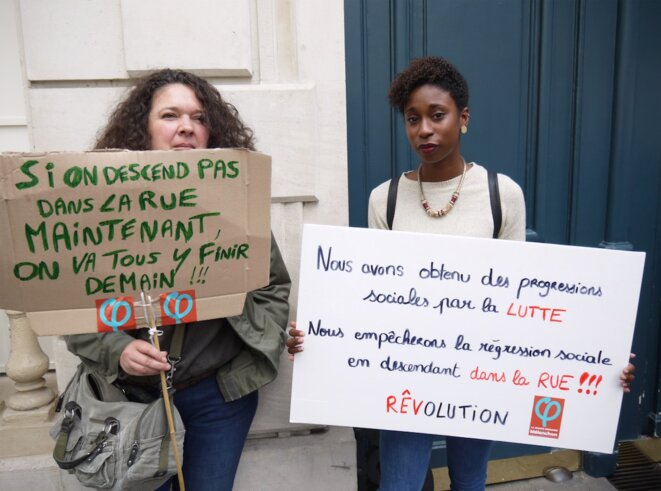 SI ON DESCEND PAS
DANS LA RUE
MAINTENANT,
ON VA TOUS Y FINIR
DEMAIN !!!
Nous avons obtenu des progressions
sociales par la LUTTE
Nous empêcherons la régression sociale
en descendant dans la RUE !!!
RÊVOLUTION
Mélenchon